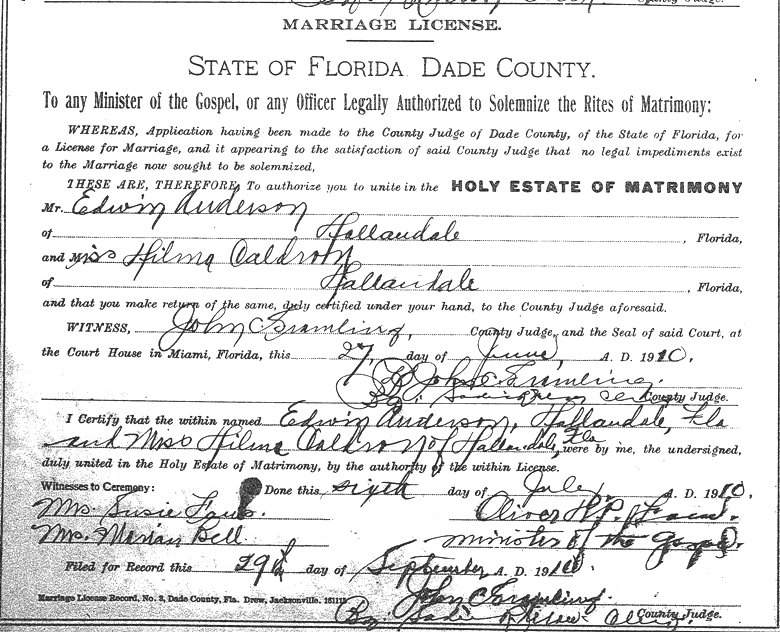 County Judge.
MARRIAGE LICENSE.
STATE OF FLORIDA DADE COUNTY.
To any Minister of the Gospel, or any Officer Legally Authorized to Solemnize the Rites of Matrimony:
WHEREAS, Application having been made to the County Judge of Dade County, of the State of Florida, for
a License for Marriage, and it appearing to the satisfaction of said County Judge that no legal impediments exist
to the Marriage now sought to be solemnized,
THESE ARE, THEREFORE, To authorize you to unite in the HOLY ESTATE OF MATRIMONY
Mr. Edwin Anderson
of Hallandale, Florida,
and Miss Hilma Caldron
of Hallandale, Florida,
and that you make return of the same, duly certified under your hand, to the County Judge aforesaid.
WITNESS, John C Gramling, County Judge, and the Seal of said Court, at
the Court House in Miami, Florida, this 27 day of June, A. D. 1910.
John C. Gramling.
By County Judge.
I Certify that the within named Edwin Anderson, Hallandale, Fla
and Miss Hilma Caldron of Hallandale, Fla were by me, the undersigned,
duly united in the Holy Estate of Matrimony, by the authority of the within License.
Witnesses to Ceremony: Done this sixth day of July, A. D. 1910.
Mrs. Susie Oliver H.P.
Mrs. Marian Bell minister of the Gospel.
Filed for Record this 29th day of September A. D. 1910.
John C Gramling.
Marriage License Record, No. 3, Dade County, Fla. Drew, Jacksonville. By County Judge.